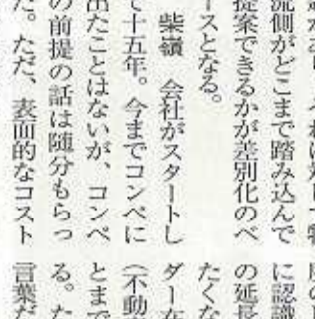 流側がどこまで踏み込んで
提案できるかが差別化のベ
ースとなる。
柴嶺　会社がスタートし
て十五年。今までコンペに
出たことはないが、コンペ
の前提の話は随分もらっ
た。ただ、表面的なコスト
に認識
の延長
たくな
ダー在
（不動
とまで
る。た
言葉だ